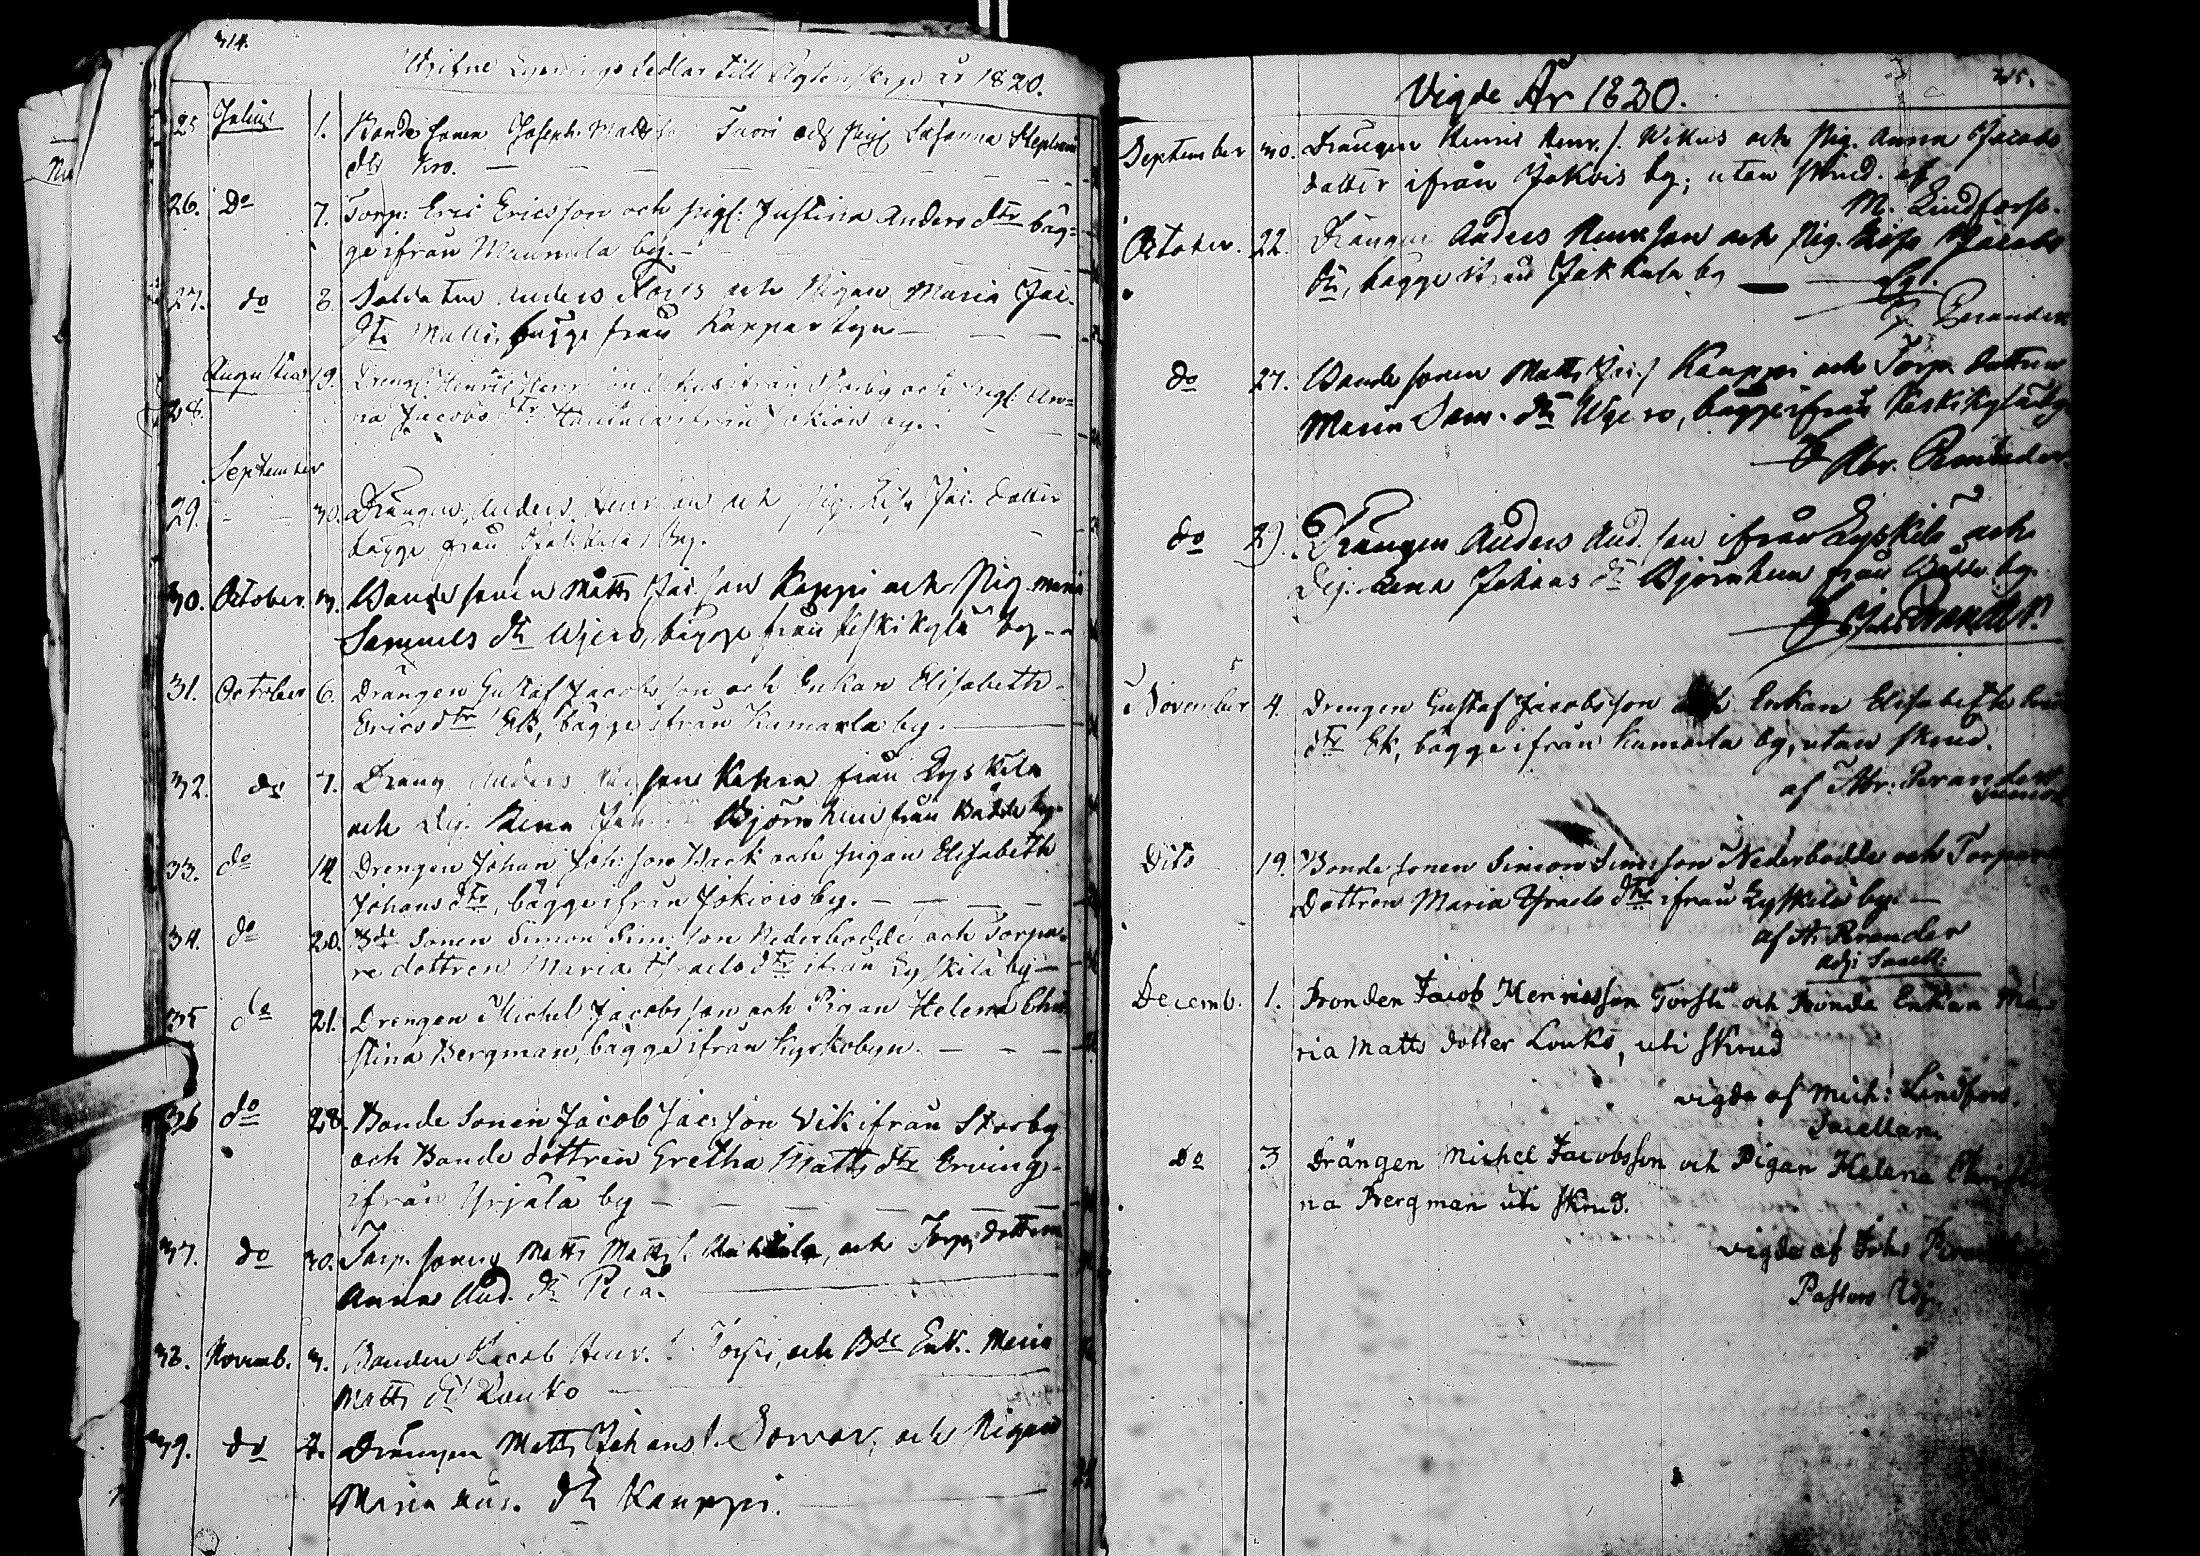 314.
Utgifne Lysnings Sedlar till Ägtenskap år 1820.
25 Julius 1. Bonde Sonen Joseph Matts Tuori och Pig Susanna Stephans
dtr Kro.
26. Do 7. Torp: Eric Ericsson och pigl: Justina Anders dtr båg=
ge ifrån Maunula by.
27. do 8. Soldaten Anders Fors och Pigan Maria Jac.
dtr Malli, bägge från Kappar byn
28. Augustus 19. Dreng: Henric Henr son Wikus ifrån by och Pigl: An=
na Jacobs dtr ifrån Jokiois by.
September
29. 30. Drängen Anders Henr son och Pig. Lisa Jac. dotter
bägge från Jakkula By.
30. October 3. Bonde sonen Matts Jac. son Kappi och Pig Maria
Samuels dtr Wjero, bägge från Keskikylä by
31. October 6. Drängen Gustaf Jacobsson och Enkan Elisabeth
Ericsdtr Ek, bägge ifrån Kumarla by.
32. do 7. Dräng Anders son från Lyskilä
och Dej. Lena Joh. Björnhem från Bådde by.
33. do 14 Drengen Johan Joh: son Back och pigan Elisabeth
Johans dtr, bägge ifrån Jokiois by.
34. do 20. Bde Sonen Simon Sim: son Nederbodde och Torpa=
re dottren Maria Israels dtr ifrån Lyskilä by
35 do 21. Drengen Michel Jacobsson och Pigan Helena Chri
stina Bergman, bägge ifrån Kyrkobyn.
36 do 28. Bonde Sonen Jacob Jac: son Vik ifrån Storby
och Bonde dottren Gretha Matts dtr Erving
ifrån Yrjälä by
37. do 30. Torp. sonen Matts Matts s. och Torp. dottern
Anna And. dtr
38. Novemb. 3. Bonden Jacob Henr. s. Torsti, och Bde Enk. Maria
Matts dtr Louko
39. do 4. Drängen Matts Johans s. Sorvar, och Pigan
Maria dtr Kauppi.
315.
Vigde År 1820.
September 30. Drängen Henric Henr. s. Wikus och Pig. Anna Jacobs
dotter ifrån Jokois by; utan skrud. af
M. Lindforss.
October. 22. Drängen Anders Henrson och Pig. Lisa Jacobs
dtr, bägge ifrån Jakkula by
Perander
do 27. Bonde sonen Matts Jac. s Kauppi och Torp. dottren
Maria Sam. dtr Wjero, bägge ifrån Keskikylä by
Abr. Perander.
do 29. Drängen Anders And. son ifrån Lyskilä och
Dej. Lena Johans dtr Björnhem från Bådde by.
November 4. Drengen Gustaf Jacobsson och Enkan Elisabeth Erics
dtr Ek, bägge ifrån Kumarla by, utan skrud.
af Abr: Perander
Dito 19. Bonde sonen Simon Sim: son Nederbodde och Torpare
Dottren Maria Israels dtr ifrån Lyskilä by.
af A. Perander
Adj: Sacell:
Decemb. 1. Bonden Jacob Henricsson Torsti och Bonde Enkan Ma
ria Matts dotter Louko, uti skrud
vigde af Mich: Lindfors.
Sacellan.
Do 3 Drängen Michel Jacobsson och Pigan Helena Christi
na Bergman uti Skrud.
vigde af Joh: Perander
Pastors Adj.